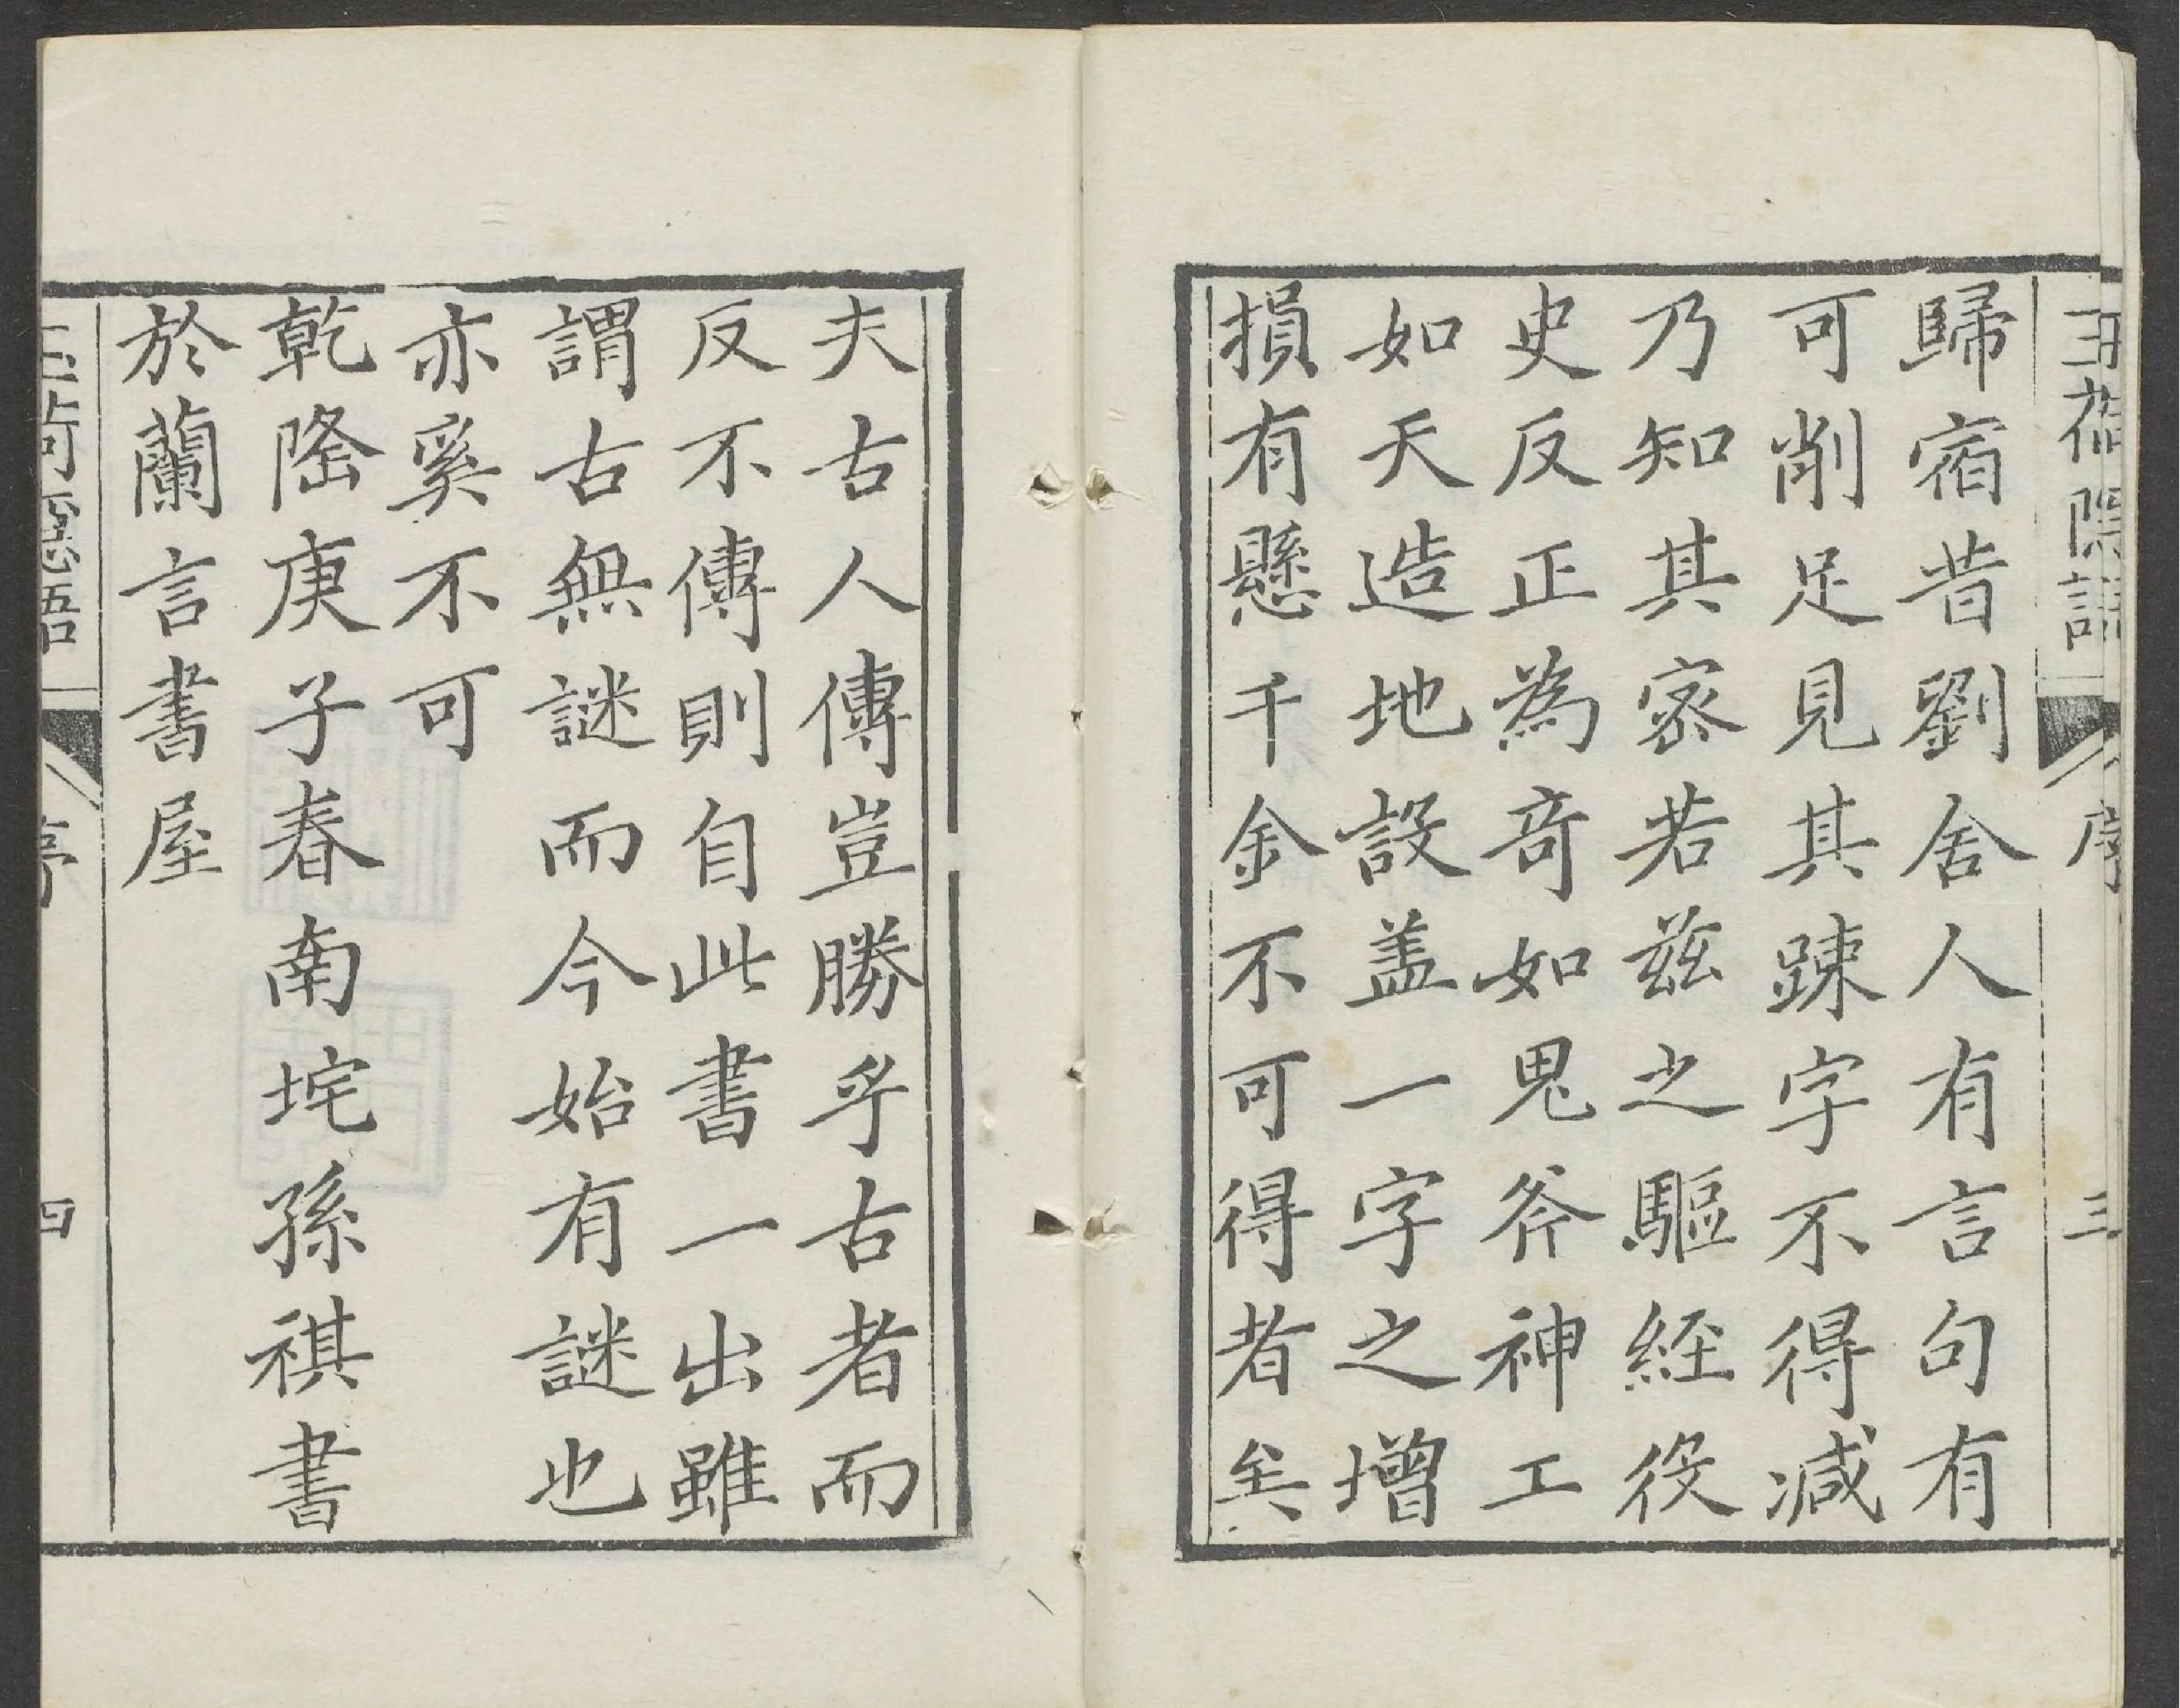 序
三
歸宿昔劉舍人有言句有
可削足見其踈字不得减
乃知其宻若兹之驅經役
史反正為竒如鬼斧神工
如天造地設盖一字之增
損有懸千金不可得者矣
夫古人傳豈勝乎古者而
反不傳則自此書一出雖
謂古無謎而今始有謎也
亦奚不可
乾隆庚子春南垞孫祺書
於蘭言書屋
四